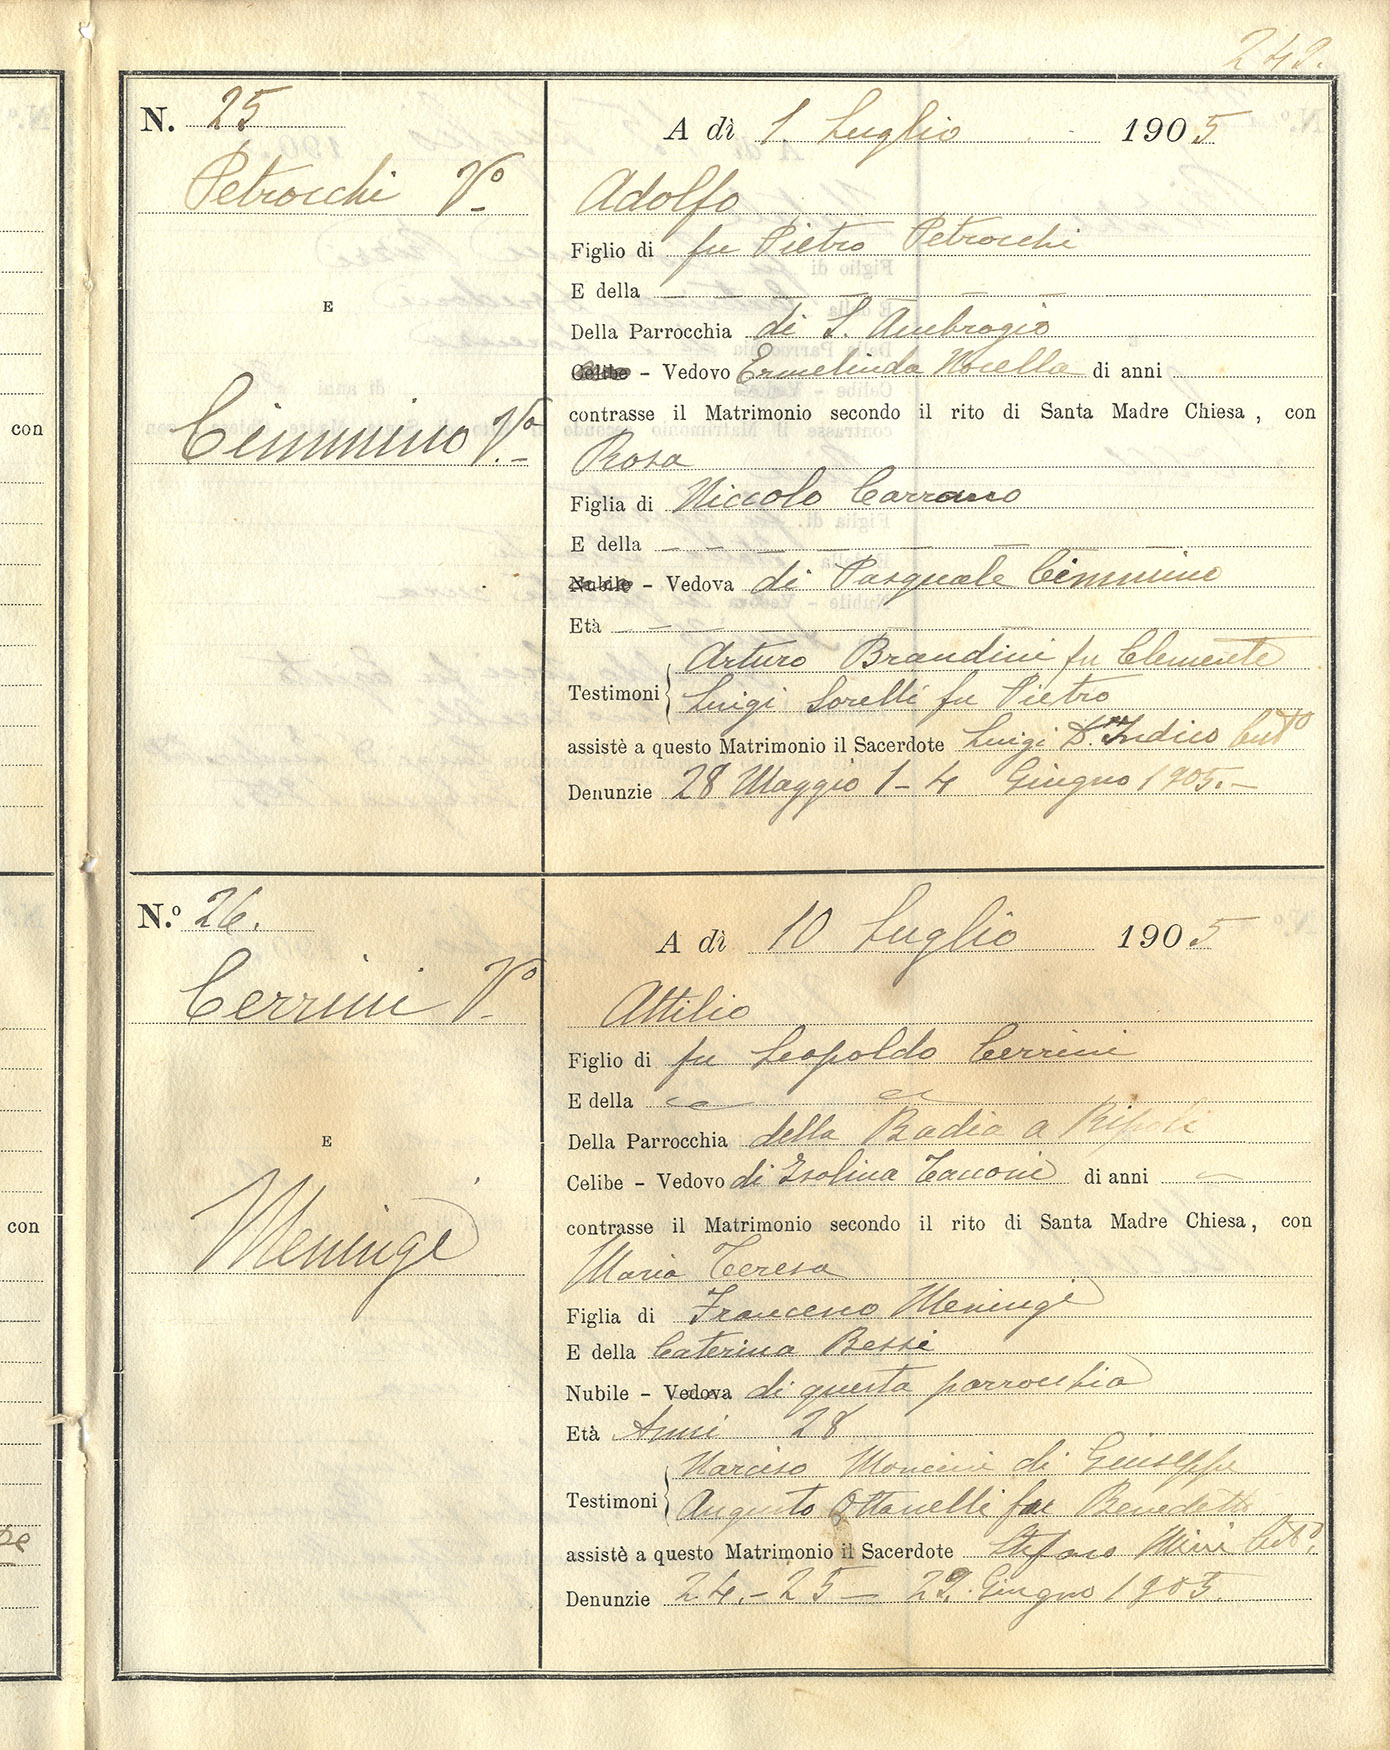 242.
N. 25
Petrocchi Vo
E
Cimmino Va
A dì 1. Luglio 1905
Adolfo
Figlio di fu Pietro Petrocchi
E della
Della Parrocchia di S. Ambrogio
Celibe - Vedovo Ermelinda di anni
contrasse il Matrimonio secondo il rito di Santa Madre Chiesa, con
Rosa
Figlia di Niccolo Carrano
E della
Nubile - Vedova di Pasquale Cimmino
Età
Arturo Brandini fu Clemente
Testimoni
Luigi Sorelli fu Pietro
assistè a questo Matrimonio il Sacerdote Luigi D'Indico
Denunzie 28 Maggio 1 - 4 Giugno 1905.-
N.o 26.
Cerrini Vo
E
Meningi
A dì 10 Luglio 1905
Attilio
Figlio di fu Leopoldo Cerrini
E della
Della Parrocchia della Badia a Ripoli
Celibe - Vedovo di Isolina Tanoni di anni
contrasse il Matrimonio secondo il rito di Santa Madre Chiesa, con
Maria Teresa
Figlia di Francesco Meningi
E della Caterina Bessi
Nubile - Vedova di questa parrocchia
Età Anni 28
Narciso Moncini di Giuseppe
Testimoni
Augusto Ottanelli fu Benedetto
assistè a questo Matrimonio il Sacerdote Stefano Mini
Denunzie 24.- 25 - 29. Giugno 1905.
con
con